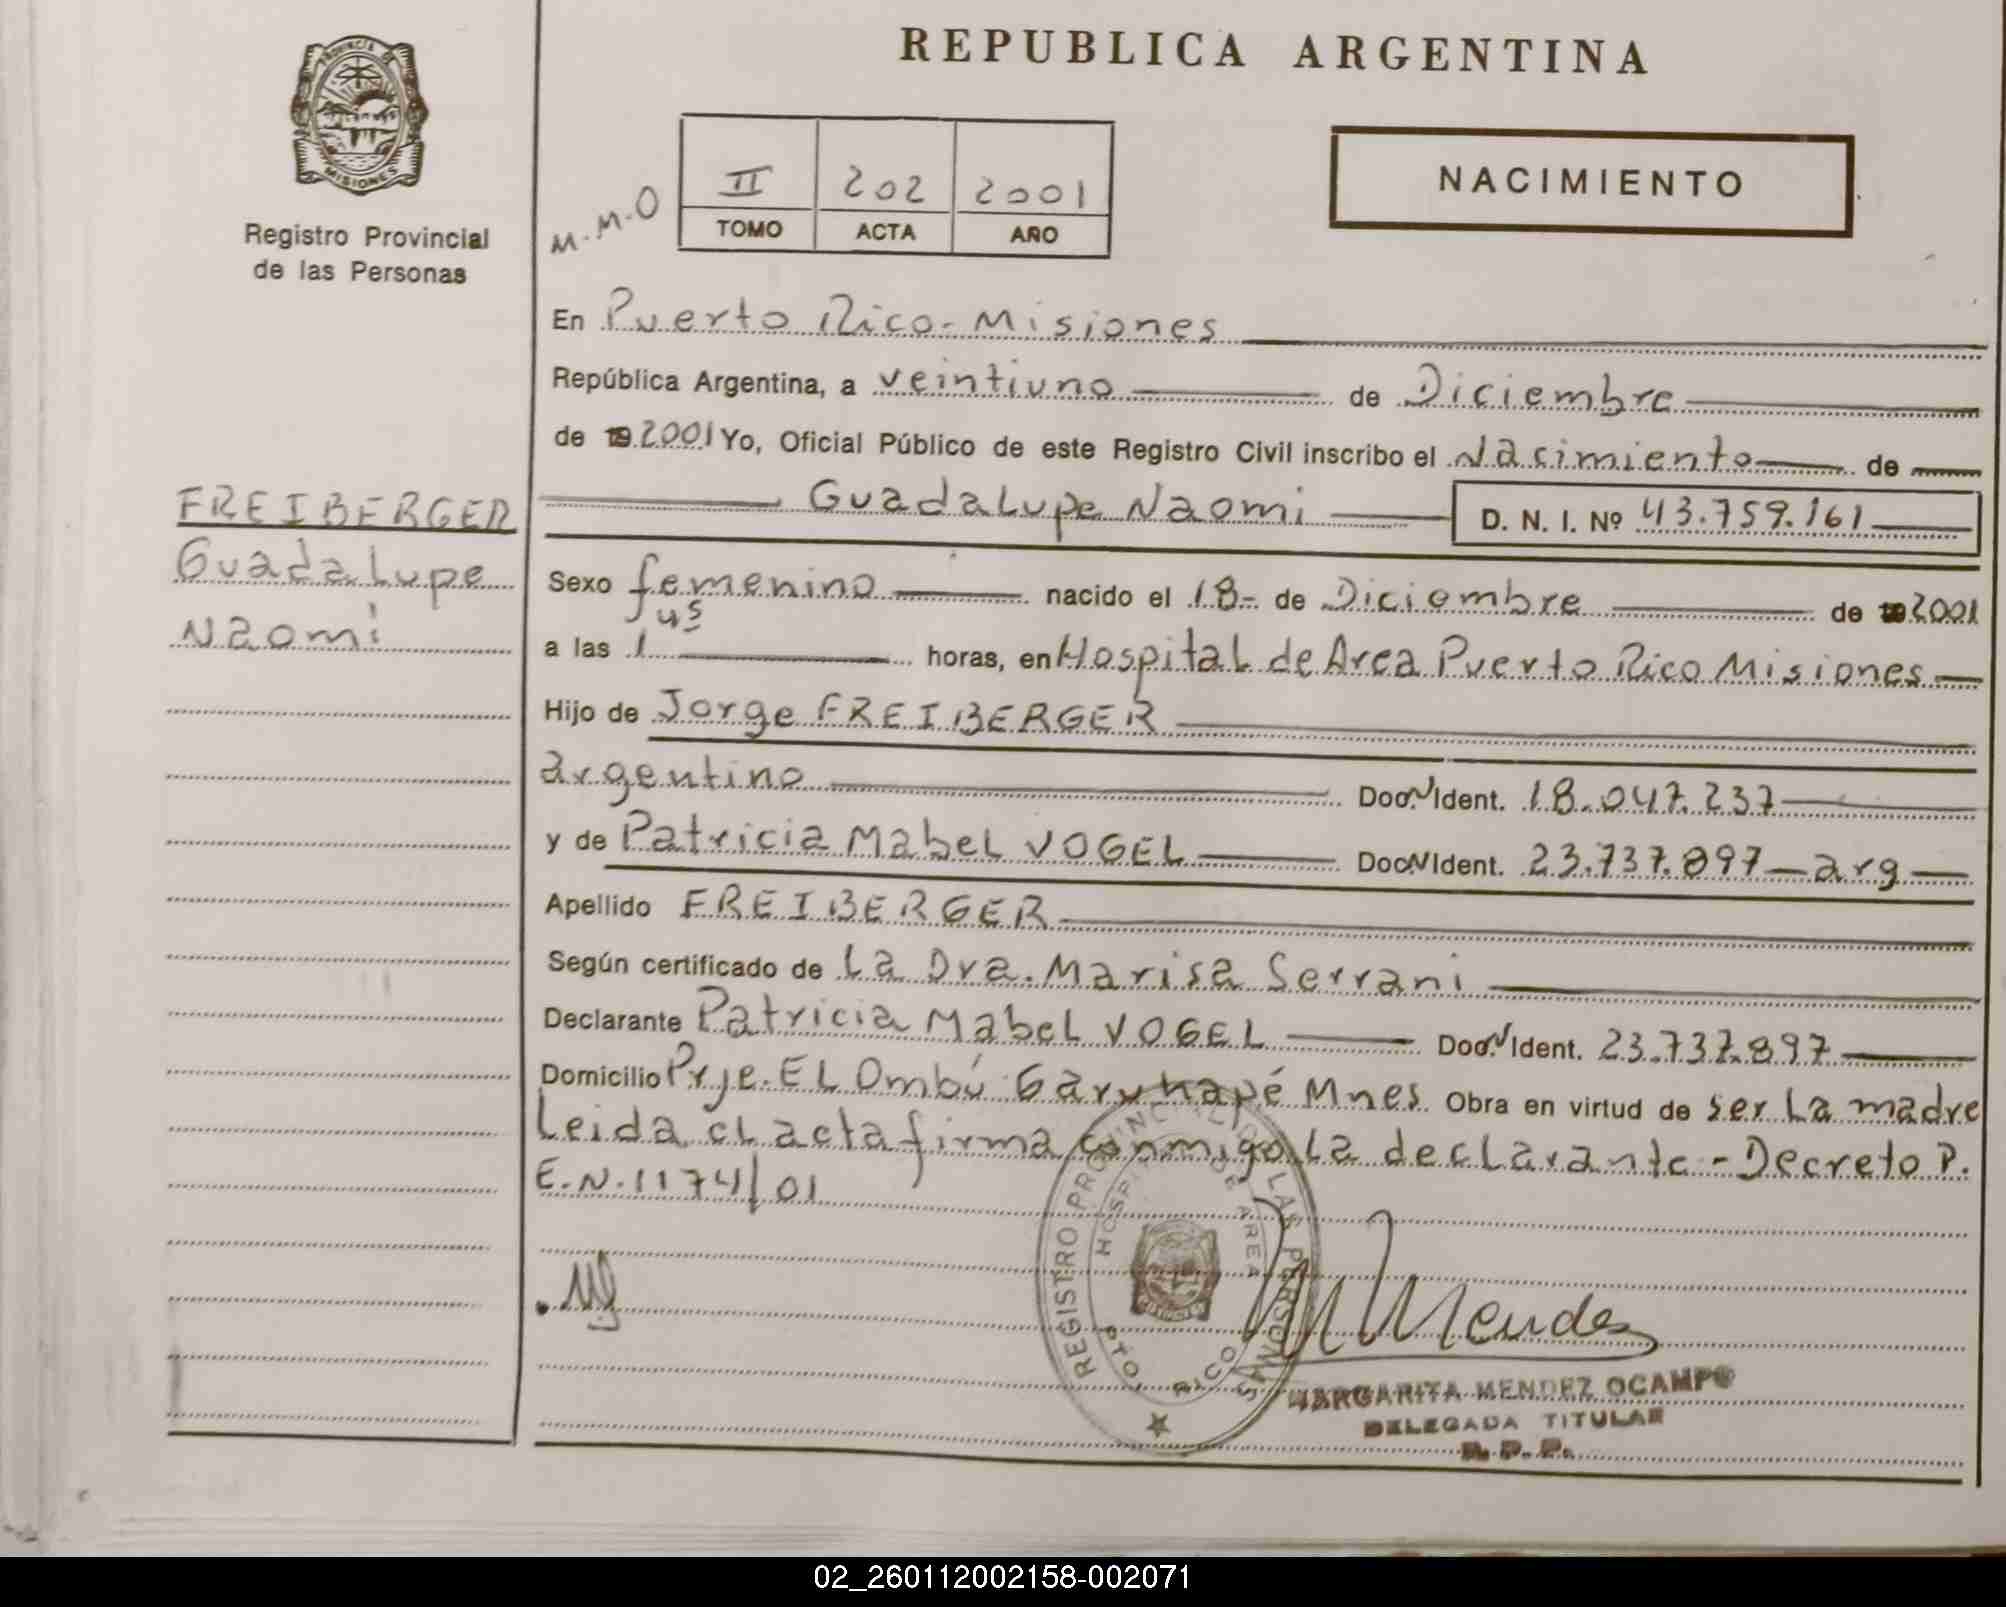 REPUBLICA ARGENTINA
PROVINCIA DE
MISIONES
Registro Provincial
de las Personas
M.M.O
II 202 2001
TOMO ACTA AÑO
NACIMIENTO
En Puerto Rico-Misiones
República Argentina, a veintiuno de Diciembre
de 19 2001 Yo, Oficial Público de este Registro Civil inscribo el Nacimiento de
Guadalupe Naomi D. N. I. Nº 43.759.161
FREIBERGER
Guadalupe
Naomi
Sexo femenino nacido el 18- de Diciembre de 19 2001
a las 1 45 horas, en Hospital de Area Puerto Rico Misiones
Hijo de Jorge FREIBERGER
argentino Doc. N Ident. 18.047.237
y de Patricia Mabel VOGEL Doc. N Ident. 23.737.897 - arg
Apellido FREIBERGER
Según certificado de La Dra. Marisa Serrani
Declarante Patricia Mabel VOGEL Doc. N Ident. 23.737.897
Domicilio Prje. EL Ombú Garuhapé Mnes. Obra en virtud de ser La madre
Leida el acta firma conmigo La declarante - Decreto P.
E.N.1174/01
REGISTRO PROVINCIAL DE LAS PERSONAS
HOSP. DE AREA
PTO. RICO
M Mendez
MARGARITA MENDEZ OCAMPO
DELEGADA TITULAR
R. P. P.
02_260112002158-002071